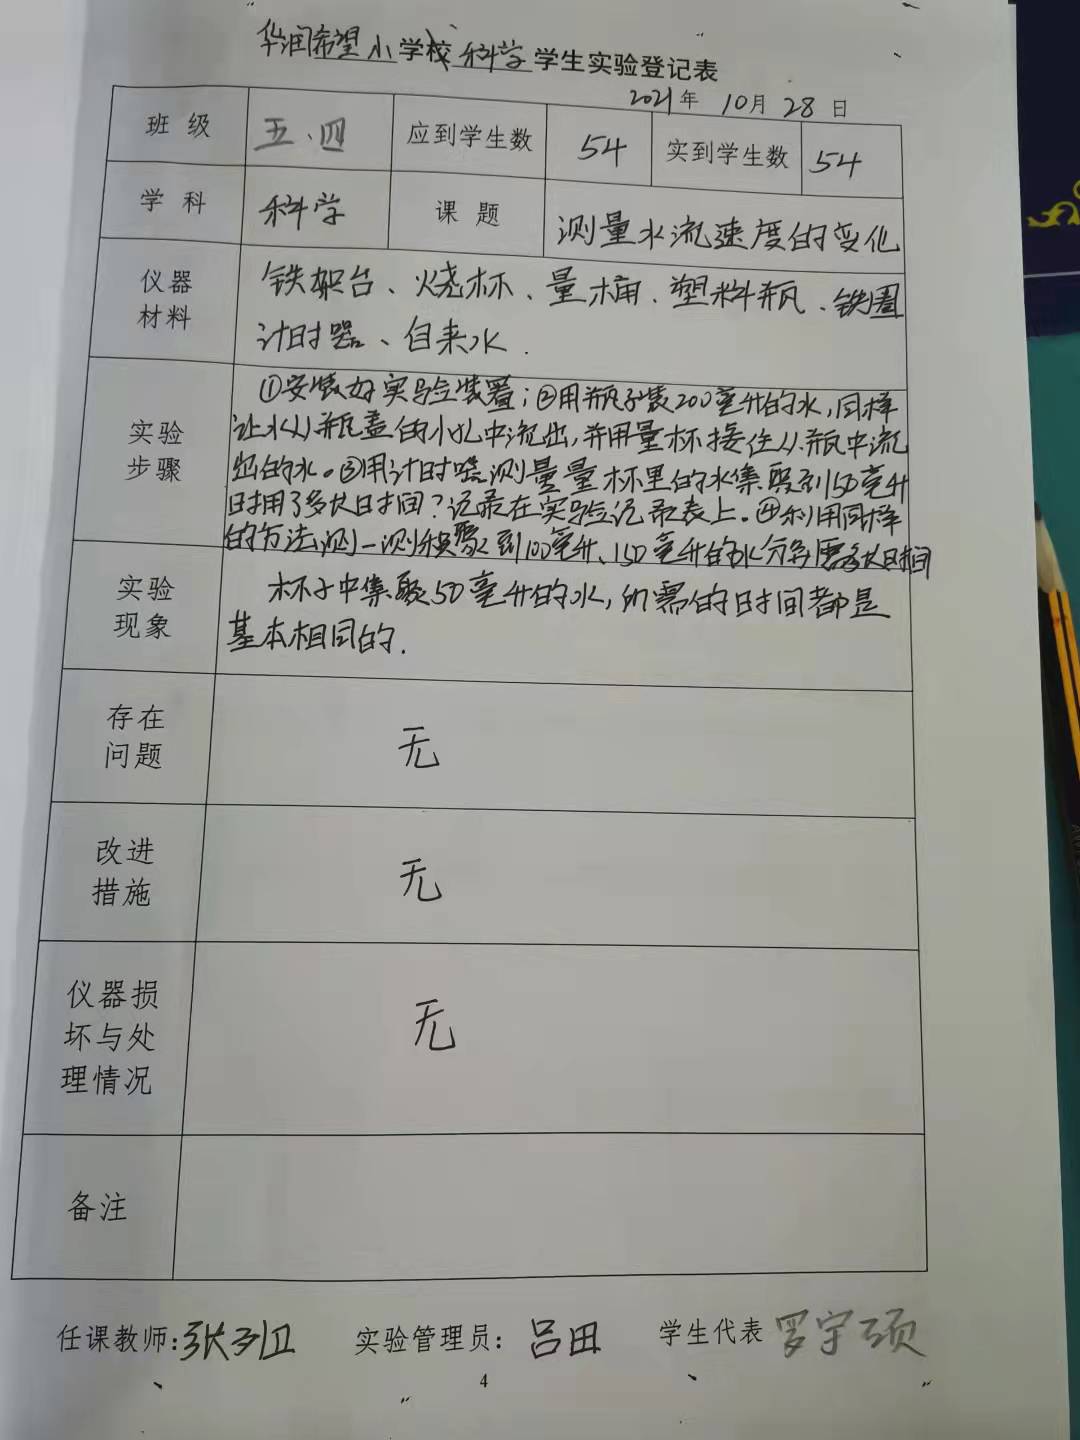 华润希望小学校科学学生实验登记表
2021年 10月 28日
班级 五、四 应到学生数 54 实到学生数 54
学科 科学 课题 测量水流速度的变化
仪器材料
铁架台、烧杯、量桶、塑料瓶、铁圈
计时器、自来水.
实验步骤
①安装好实验装置；②用瓶子装200毫升的水，同样
让水从瓶盖的小孔中流出，并用量杯接住从瓶中流
出的水。③用计时器测量量杯里的水集聚到50毫升
时用了多长时间？记录在实验记录表上。④利用同样
的方法测一测积聚到100毫升、150毫升的水分别需多长时间
实验现象
杯子中集聚50毫升的水，所需的时间都是
基本相同的.
存在问题
无
改进措施
无
仪器损坏与处理情况
无
备注
任课教师: 实验管理员: 吕田 学生代表 罗宇
4